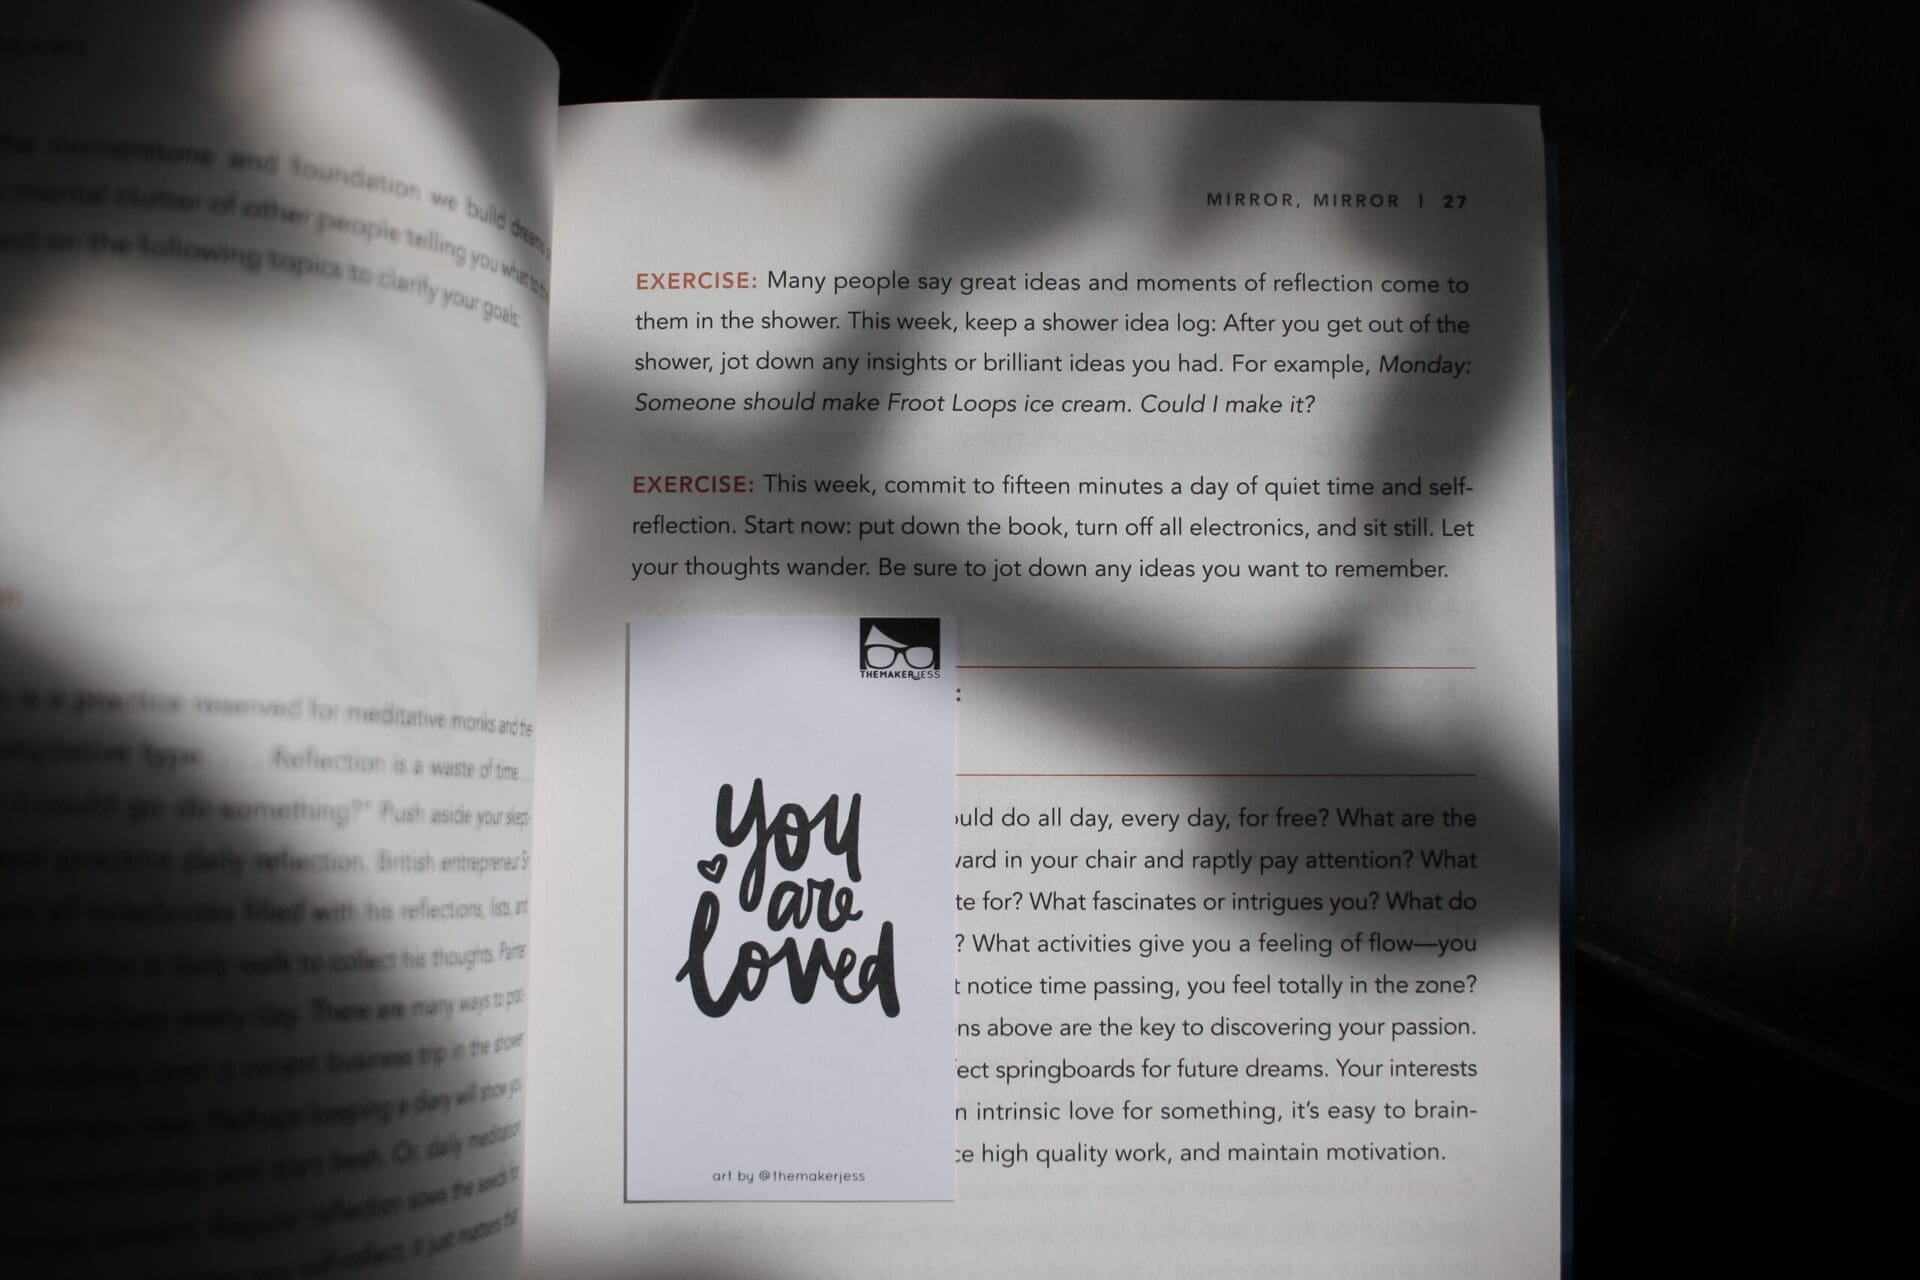 cornerstone and foundation we build dreams
mental clutter of other people telling you what to
on the following topics to clarify your goals:
is a practice reserved for meditative monks and the
type . . . . Reflection is a waste of time. . .
go do something?" Push aside your skept-
daily reflection. British entrepreneur
filled with his reflections, lists, and
walk to collect his thoughts. Painter
day. There are many ways to prac-
a recent business trip in the shower
keeping a diary will show you
start fresh. Or, daily meditation
Regular reflection sows the seeds for
self-reflect, it just matters that
MIRROR, MIRROR | 27
EXERCISE: Many people say great ideas and moments of reflection come to
them in the shower. This week, keep a shower idea log: After you get out of the
shower, jot down any insights or brilliant ideas you had. For example, Monday:
Someone should make Froot Loops ice cream. Could I make it?
EXERCISE: This week, commit to fifteen minutes a day of quiet time and self-
reflection. Start now: put down the book, turn off all electronics, and sit still. Let
your thoughts wander. Be sure to jot down any ideas you want to remember.
:
uld do all day, every day, for free? What are the
ard in your chair and raptly pay attention? What
te for? What fascinates or intrigues you? What do
? What activities give you a feeling of flow—you
t notice time passing, you feel totally in the zone?
ns above are the key to discovering your passion.
ect springboards for future dreams. Your interests
n intrinsic love for something, it's easy to brain-
ce high quality work, and maintain motivation.
THEMAKERJESS
you
are
loved
art by @themakerjess